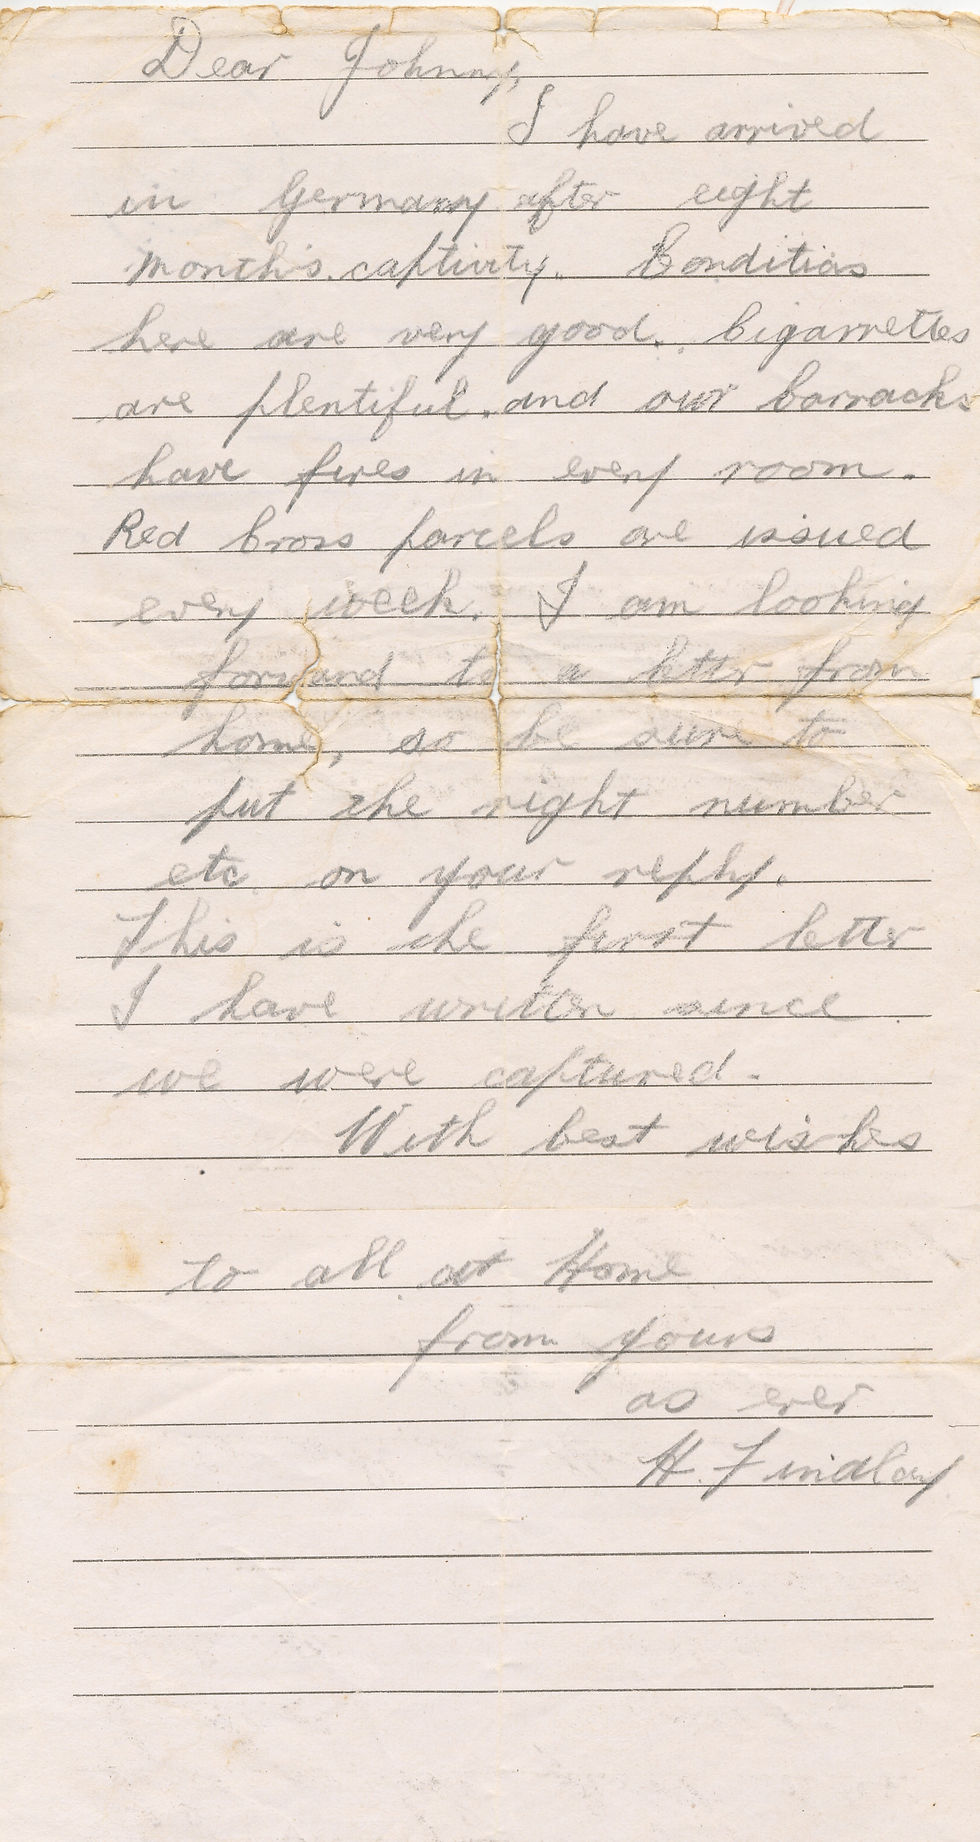 Dear Johnny,
I have arrived
in Germany after eight
month's captivity. Conditios
here are very good. Cigarrettes
are plentiful and our barracks
have fires in every room.
Red Cross parcels are issued
every week. I am looking
forward to a letter from
home, so be sure to
put the right number
etc on your reply.
This is the first letter
I have written since
we were captured.
With best wishes
to all at Home
from yours
as ever
H. Findlay